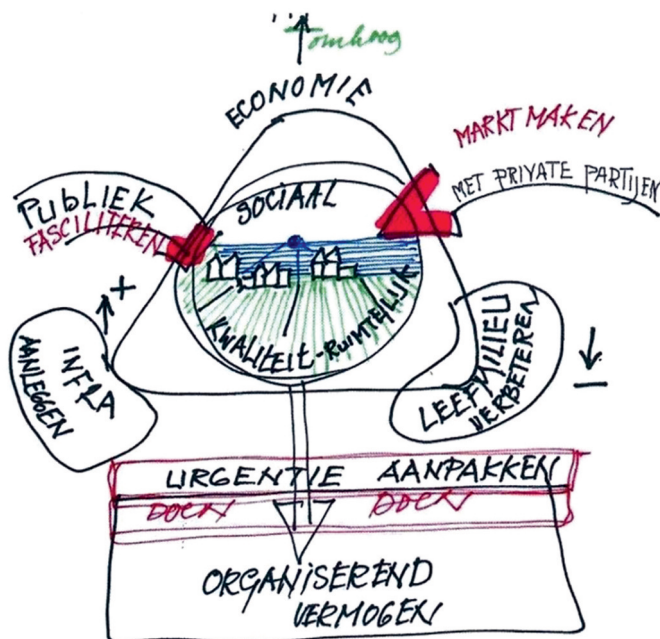 omhoog
ECONOMIE
MARKT MAKEN
MET PRIVATE PARTIJEN
PUBLIEK
FASCILITEREN
SOCIAAL
KWALITEIT-RUIMTELIJK
+
INFRA
AANLEGGEN
LEEFMILIEU
VERBETEREN
−
URGENTIE AANPAKKEN
DOEN DOEN
ORGANISEREND
VERMOGEN